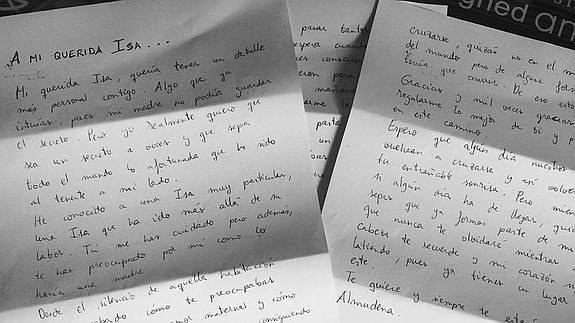 A MI QUERIDA ISA...
Mi querida Isa, quería tener un detalle
más personal contigo. Algo que ya
intuías, pues mi madre no podía guardar
el secreto. Pero yo realmente quiero que
sea un secreto a voces y que sepa
todo el mundo lo afortunada que he sido
al tenerte a mi lado.
He conocido a una Isa muy particular,
una Isa que ha ido más allá de su
labor. Tú me has cuidado pero además,
te has preocupado por mí como lo
haría una madre.
Desde el silencio de aquella habitación
cómo te preocupabas
maternal y cómo
pasar tantos
espera cuando
para
mañana
cruzarse, quizás no en el
del mundo pero de alguna form
tenía que ocurrir. De eso esto
Gracias y mil veces gracias
regalarme lo mejor de ti y p
en este camino.
Espero que algún día nuestros
vuelvan a cruzarse y así volver
tu entrañable sonrisa. Pero mien
si algún día ha de llegar, quie
sepas que ya formas parte de m
que nunca te olvidaré mientras
cabeza te recuerde y mi corazón s
latiendo, pues ya tienes un lugar
este.
Te quiere y siempre te esta
Almudena.
gned an